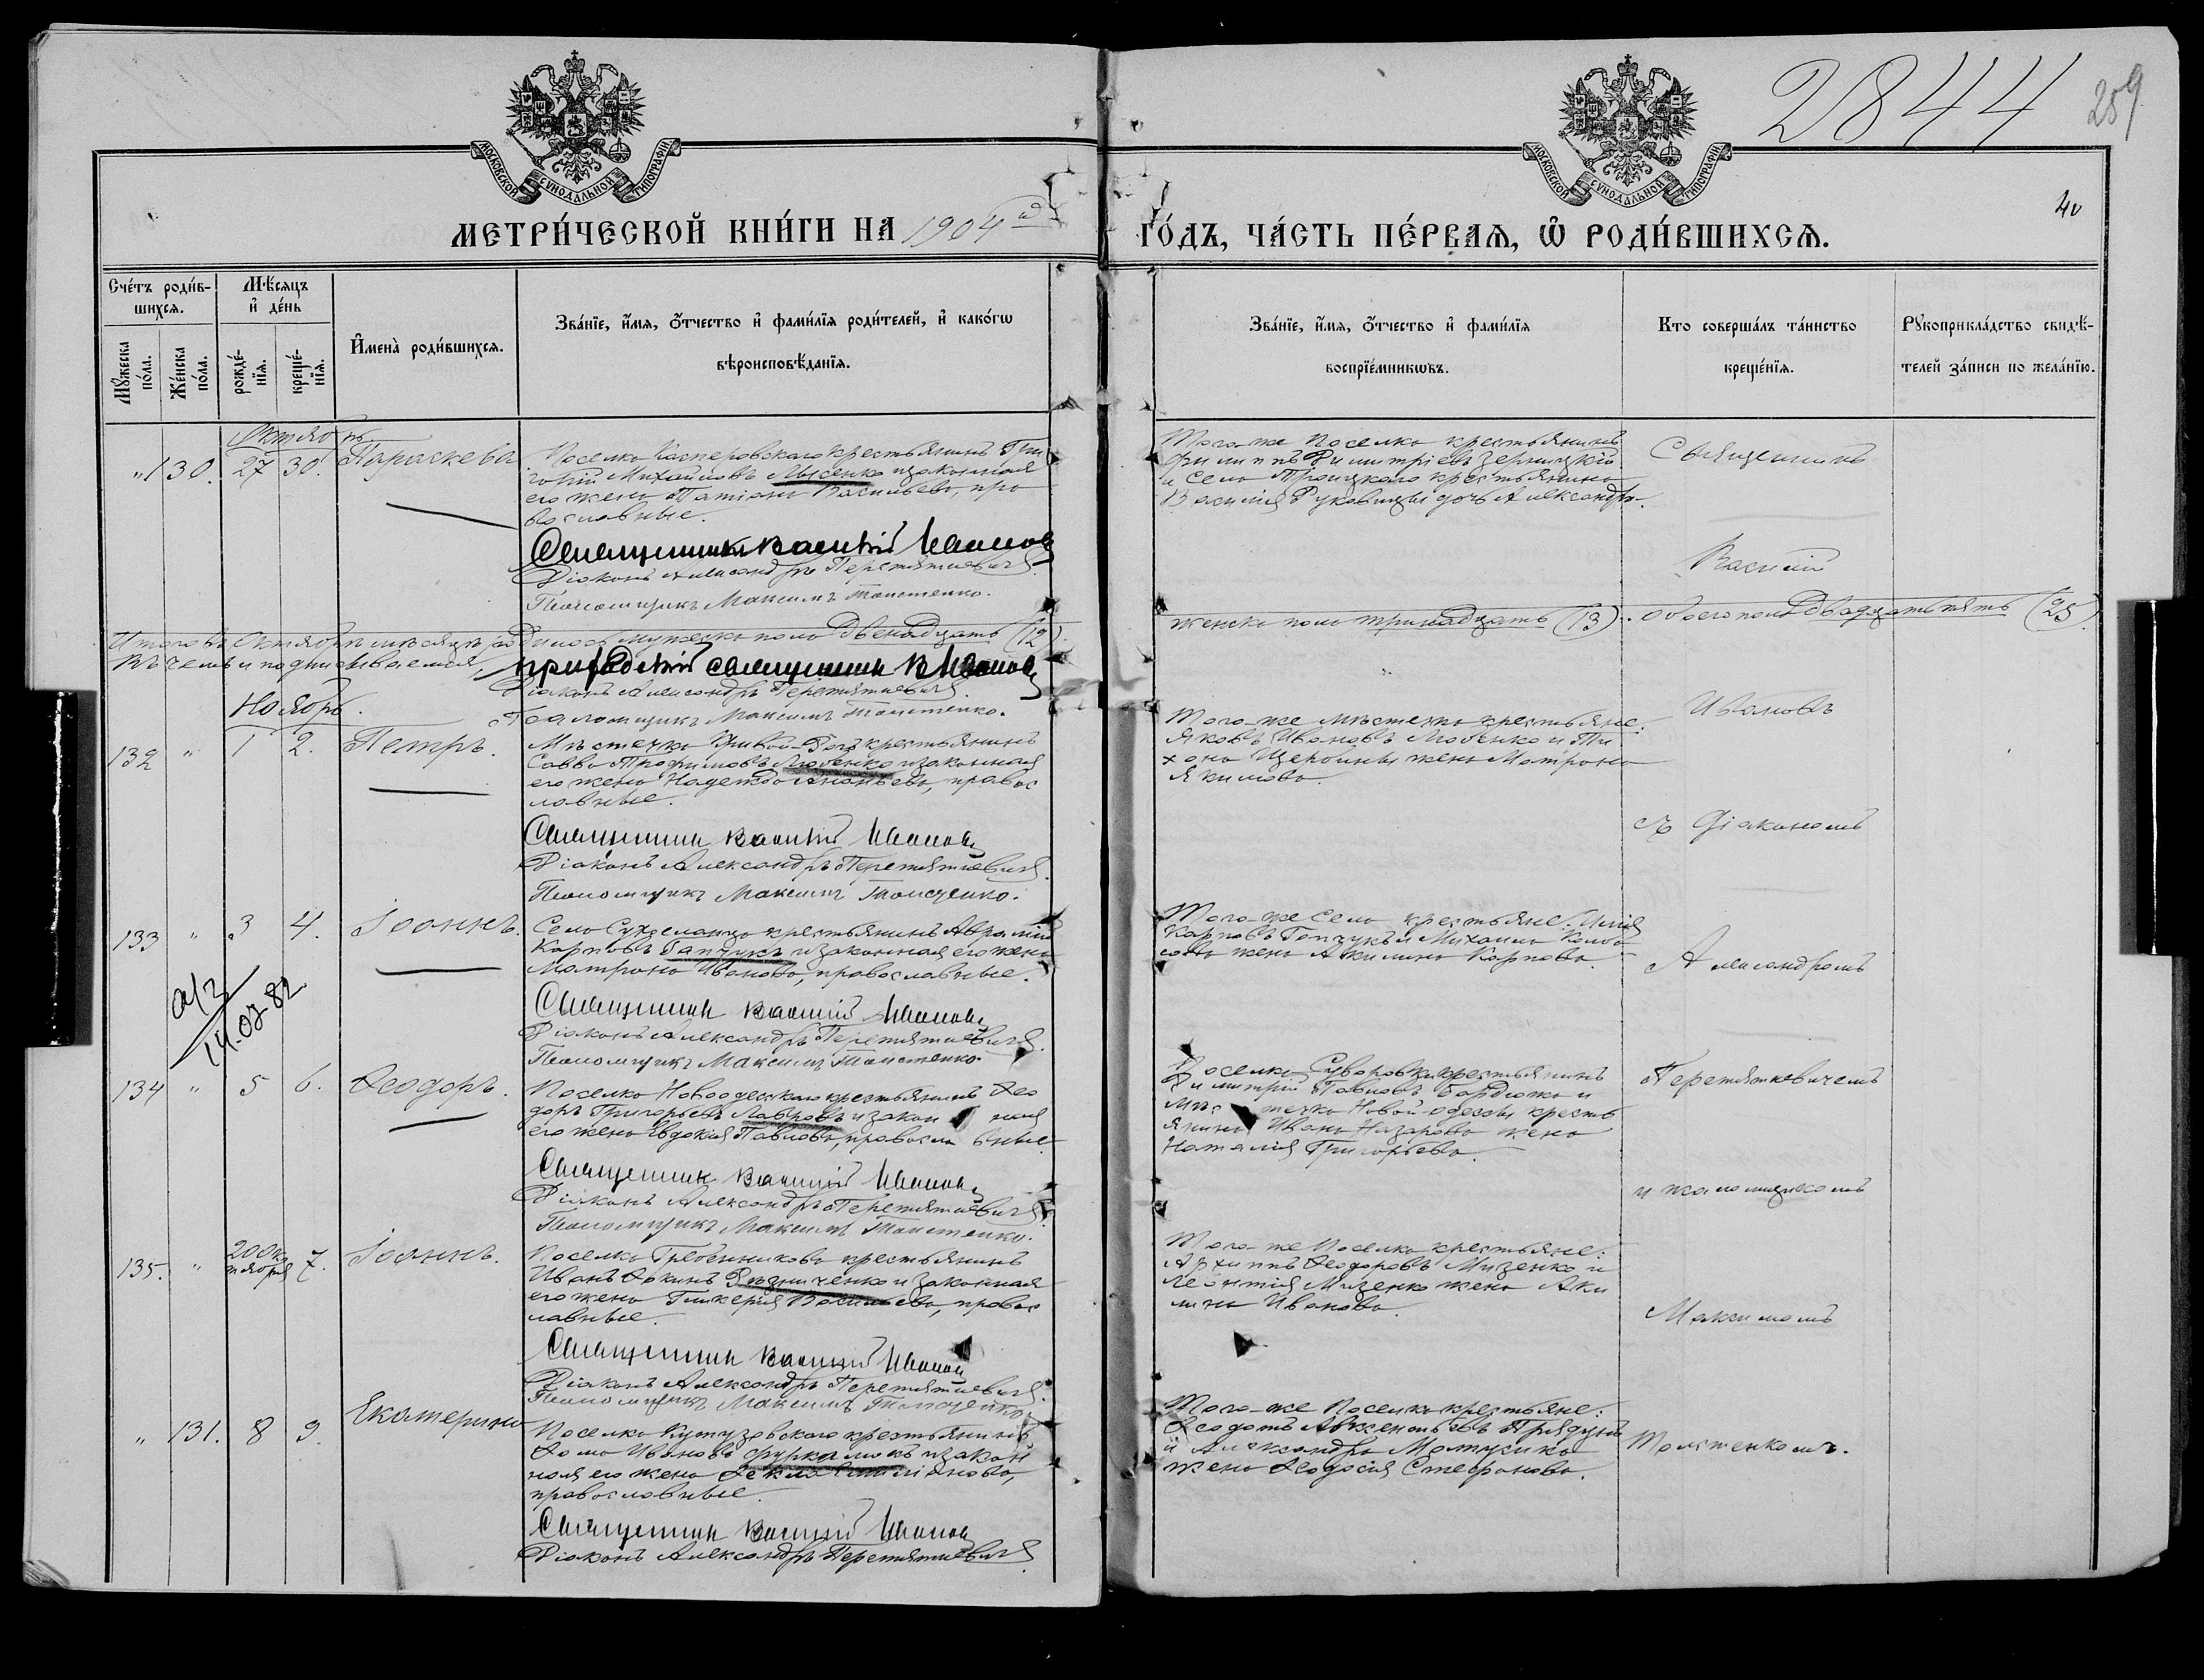 2844
259
40
МОСКОВСКОЙ СѴНОДАЛЬНОЙ ТИПОГРАФІИ
МОСКОВСКОЙ СѴНОДАЛЬНОЙ ТИПОГРАФІИ
МЕТРИ́ЧЕСКОЙ КНИ́ГИ НА 1904 й
ГО́ДЪ, ЧА́СТЬ ПЕ́РВАѦ, Ѡ҆ РОДИ́ВШИХСѦ.
Сче́тъ роди́в-
шихсѧ.
Мꙋ́жеска по́ла.
Же́нска по́ла.
Мѣ́сѧцъ
и҆ де́нь
рожде́-
нїѧ.
креще́-
нїѧ.
И҆мена̀ роди́вшихсѧ.
Зва́нїе, и҆́мѧ, ѻ҆́тчество и҆ фами́лїѧ роди́телей, и҆ како́гѡ
вѣроисповѣ́данїѧ.
Зва́нїе, и҆́мѧ, ѻ҆́тчество и҆ фами́лїѧ
воспрїе́мникѡвъ.
Кто соверша́лъ та́инство
креще́нїѧ.
Рꙋкоприкла́дство свидѣ́-
телей за́писи по жела́нїю.
Октябрь.
" 130. 27 30. Параскева
Поселка Касперовскаго крестьянинъ Гри
горій Михайловъ Лысенко и законная
его жена Татіана Васильева, пра
вославные.
Священникъ Василій Иванов
Діаконъ Александръ Перетяткевичъ
Псаломщикъ Максимъ Толстенко.
Того-же поселка крестьянинъ
Филиппъ Димитріевъ Зерницкій
и села Троицкаго крестьянина
Василія Руковицы дочь Александра.
Священникъ
Василій
Итого въ Октябрѣ мѣсяцѣ родилось мужеска пола двенадцать (12)
женска пола тринадцать (13). обоего пола двадцать пять (25).
Въ чемъ и подписываемся,
приходскій священник В Иванов
Діаконъ Александръ Перетяткевичъ
Псаломщикъ Максимъ Толстенко.
Ноябрь.
132 " 1 2. Петръ.
Мѣстечка Кривой-Рогъ крестьянинъ
Савва Трофимовъ Любенко и законная
его жена Надежда Ананьева, правос
лавные.
Священник Василій Иванов
Діаконъ Александръ Перетяткевичъ.
Псаломщикъ Максимъ Толстенко.
Того-же мѣстечка крестьяне:
Яковъ Ивановъ Любенко и Ти
хона Щербины жена Матрона
Якимова.
Ивановъ
съ Діакономъ
133 " 3 4. Іоаннъ.
Карповъ Гапчукъ и законная его жена
Матрона Иванова, православные.
Священник Василій Иванов
Діаконъ Александръ Перетяткевичъ.
Псаломщикъ Максимъ Толстенко.
Того-же села крестьяне: Илія
Карповъ Гапчукъ и Михаила
жена Акилина Карпова.
Александромъ
14.07.82
134 " 5 6. Ѳеодоръ.
Поселка Новоодесскаго крестьянинъ Ѳео
доръ Григорьевъ Лавровъ и закон ная
его жена Евдокія Павлова, правосла вные.
Священник Василій Иванов
Діаконъ Александръ Перетяткевичъ.
Псаломщикъ Максимъ Толстенко.
Поселка Суворовки крестьянинъ
Димитрій Павловъ Бардюжа и
мѣстечка Новой-Одессы кресть
янина Ивана Назарова жена
Наталія Григорьева.
Перетяткевичемъ
и псаломщикомъ
135. " 20 октября 7. Іоаннъ.
Поселка Гребенникова крестьянинъ
Иванъ Ѳокинъ Рѣзниченко и законная
его жена Гликерія Васильева, правос
лавные.
Священник Василій Иванов
Діаконъ Александръ Перетяткевичъ.
Псаломщикъ Максимъ Толстенко.
Того-же поселка крестьяне:
Архиппъ Ѳеодоровъ Мизенко и
Леонтія Мизенко жена Аки
лина Иванова.
Максимомъ
" 131. 8 9. Екатерина
Поселка Кутузовскаго крестьянинъ
Ѳома Ивановъ Фуркаликъ и закон
ная его жена Ѳекла Емиліанова,
православные.
Священник Василій Иванов
Діаконъ Александръ Перетяткевичъ
Того-же поселка крестьяне:
Ѳеодотъ Авксентіевъ Прядунъ
и Александра Матукина
жена Ѳеодосія Стефанова.
Толстенкомъ.